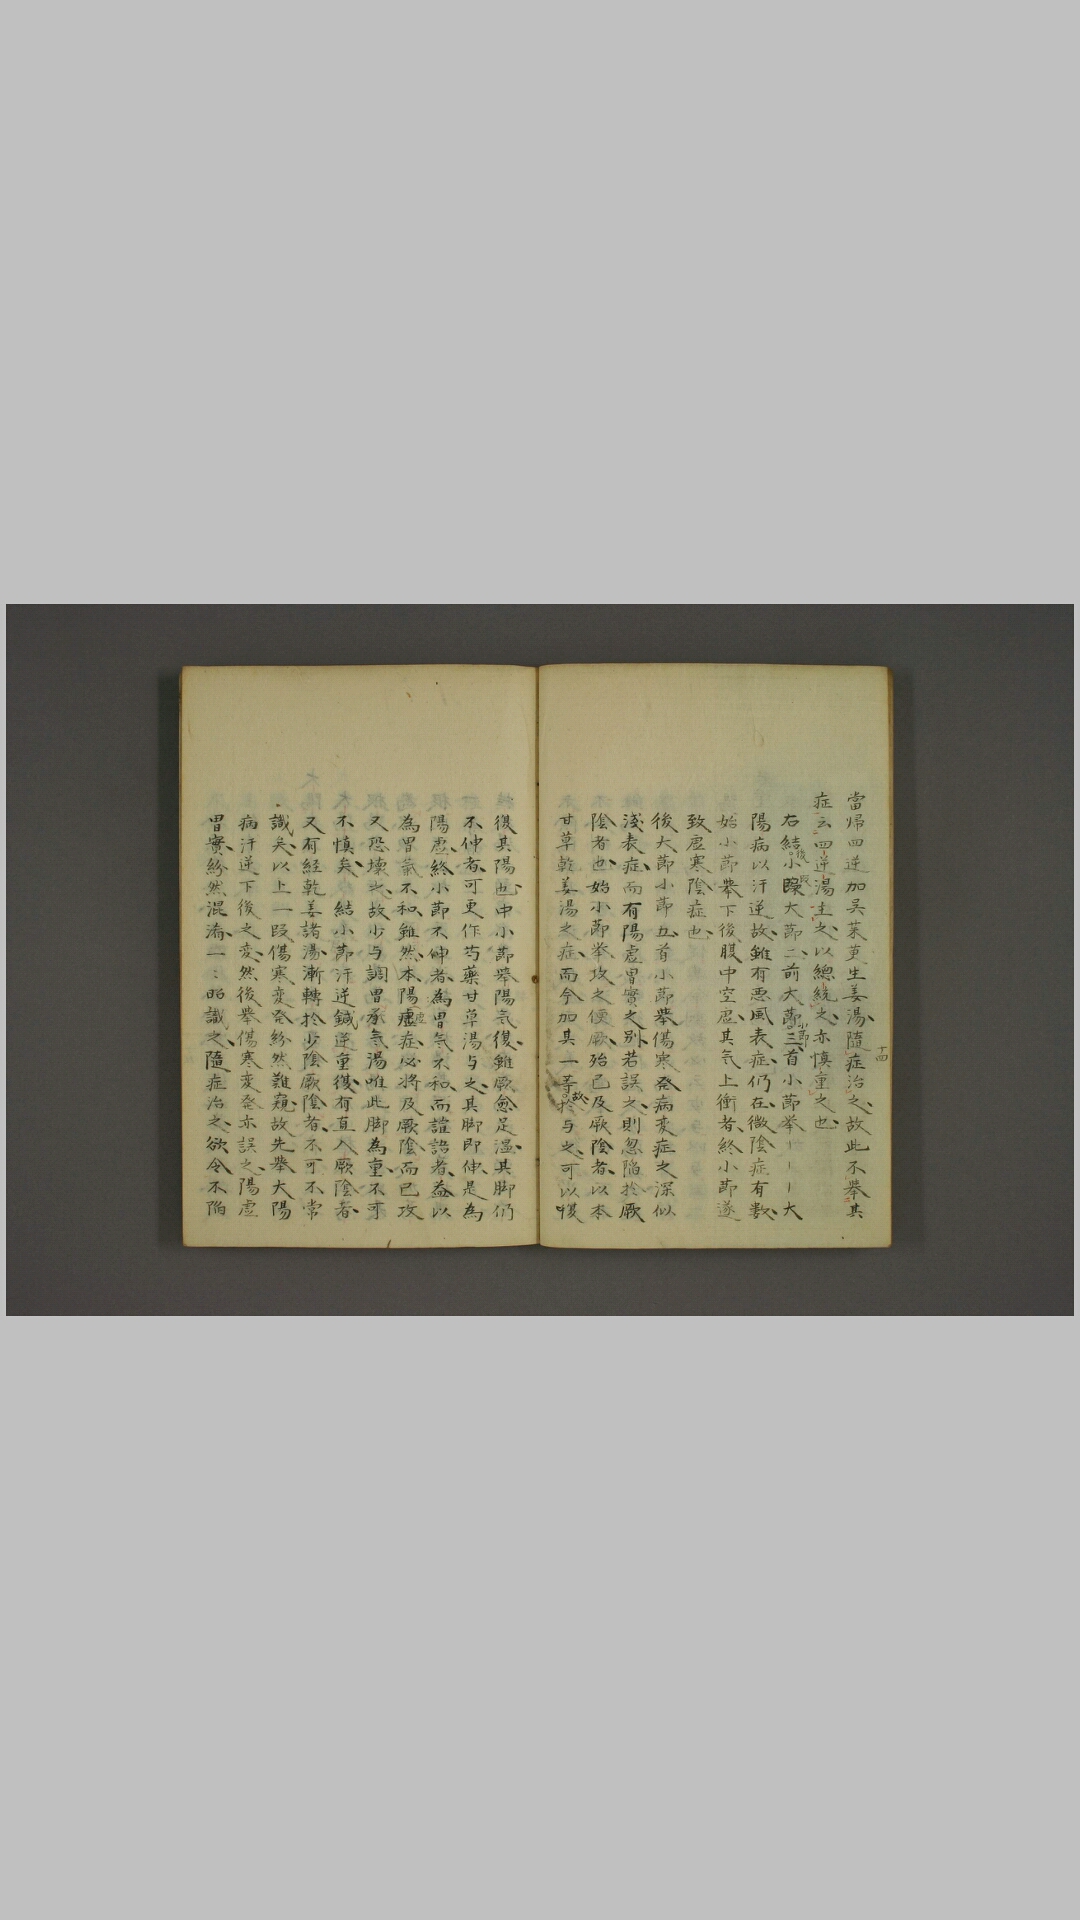 當帰四逆加吴茱萸生姜湯隨症治之故此不挙其
症云四逆湯主之以總統之亦慎重之也
右結小段大節二前大節三首小節挙｜｜｜大
陽病以汗逆故雖有悪風表症仍在微陰症有数
始小節挙下後腹中空虚其気上衝者終小節遂
致虚寒陰症也
後大節小節五首小節挙傷寒発病変症之深似
淺表症而有陽虚胃實之别若誤之則忽陥於厥
陰者也始小節挙攻之便厥殆已及厥陰者以本
甘草乾姜湯之症而今加其一等故於与之可以復
十四
復其陽也中小節挙陽気復雖厥愈足温其脚仍
不伸者可更作芍藥甘草湯与之其脚即伸是為
陽虚終小節不伸者為胃気不和而譫語者益以
為胃氣不和雖然本陽虚症必將及厥陰而已攻
又恐壊之故少与調胃承気湯唯此脚為重不可
不慎矣　結小節汗逆鍼逆重復有直入厥陰者
又有経乾姜諸湯漸轉於少陰厥陰者不可不常
識矣以上一段傷寒変発紛然難窺故先挙大陽
病汗逆下後之変然後挙傷寒変発亦誤之陽虚
胃實紛然混淆一〻昭識之隨症治之欲令不陥